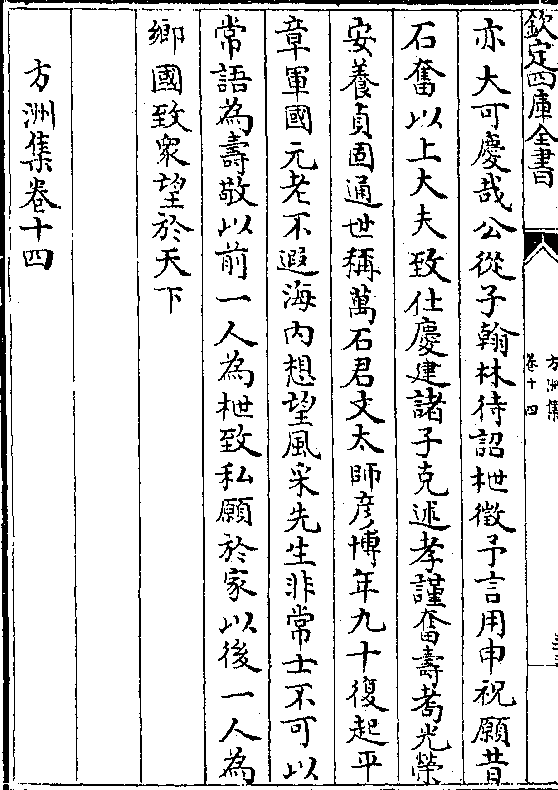 欽定四庫全書
方洲集
卷十四
亦大可慶哉公從子翰林待詔枻徵予言用申祝願昔
石奮以上大夫致仕慶建諸子克述孝謹奮壽耇光榮
安養貞固通世稱萬石君文太師彦博年九十復起平
章軍國元老不遐海内想望風采先生非常士不可以
常語為壽敬以前一人為枻致私願於家以後一人為
鄉國致衆望於天下
方洲集卷十四